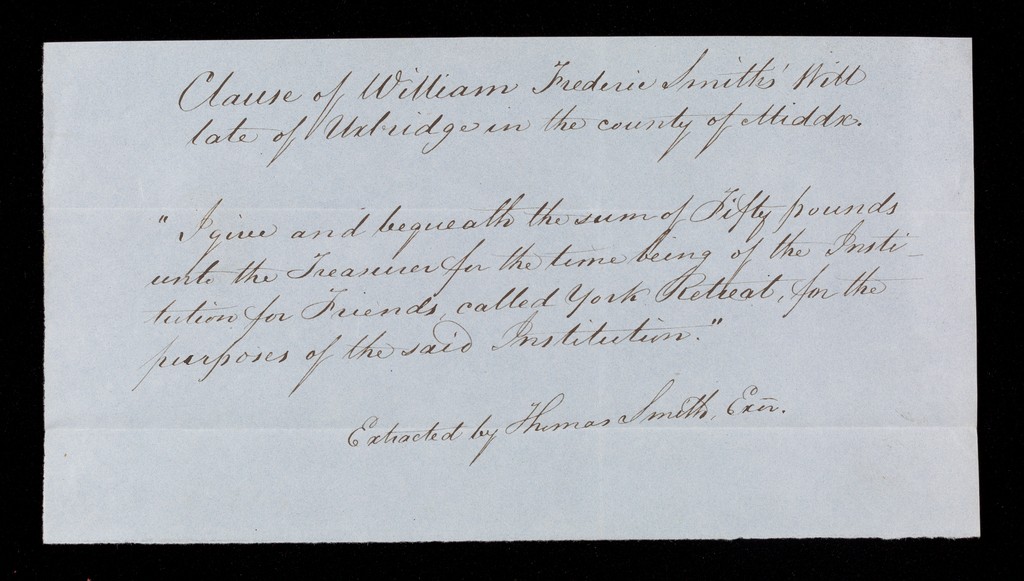 Clause of William Frederic Smith's Will
late of Uxbridge in the county of Middx.
"I give and bequeath the sum of Fifty pounds
unto the Treasurer for the time being of the Insti-
tution for Friends, called York Retreat, for the
purposes of the said Institution."
Extracted by Thomas Smith, Exr.